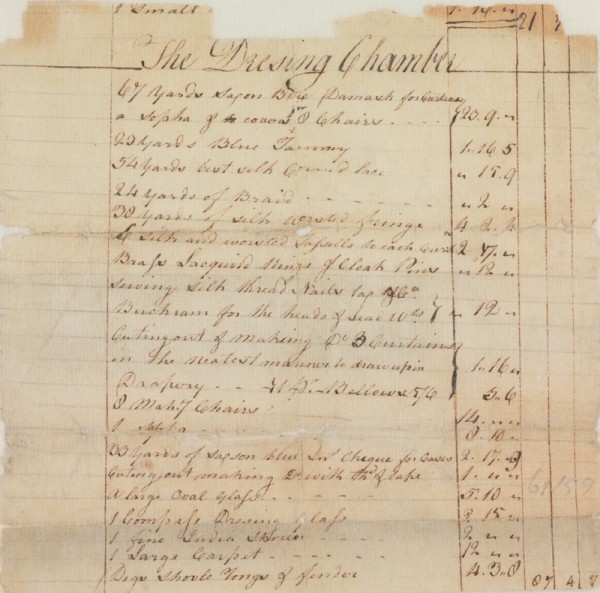 1 Small 1. 14. " 21 7
The Dresing Chamber
67 Yards Saxon Blue Damask for Curtains
a Sopha & to cover 8 Chairs - - - - 23. 9. "
23 Yards Blue Tammy 1. 16. 5
54 Yards best silk Covered lace " 15. 9
24 Yards of Braid - - - - - " 2. "
38 Yards of silk & worsted fringe 4. 2. 2
silk and worsted tassells to each Curtn 2. 7. "
Brass Lacquird Rings & Cloak Pins " 12 "
Sewing silk thread Nails tap &Ca
Buckram for the heads & lead Wts " 12 "
Cuting out & Making Do 3 Curtains
in the neatest manner to draw up in 1. 16 "
Drapery - - - 1 Pr Bellows 5/6 5. 6
8 Mahy Chairs 14. " "
1 Sofa - - - - 8. 10. "
33 Yards of saxon blue Cheque for Cases 2. 17. 9
Cuting out making Do with thd & tape 1. " "
A large Oval Glass - - - - 5. 10 "
1 Compass Dresing Glass 2. 15 "
1 fine India Skreen - - - - 2 " "
1 Large Carpet - - - - 12 " "
Dogs Shovle Tongs & fender 4. 3. 8 87 4 7